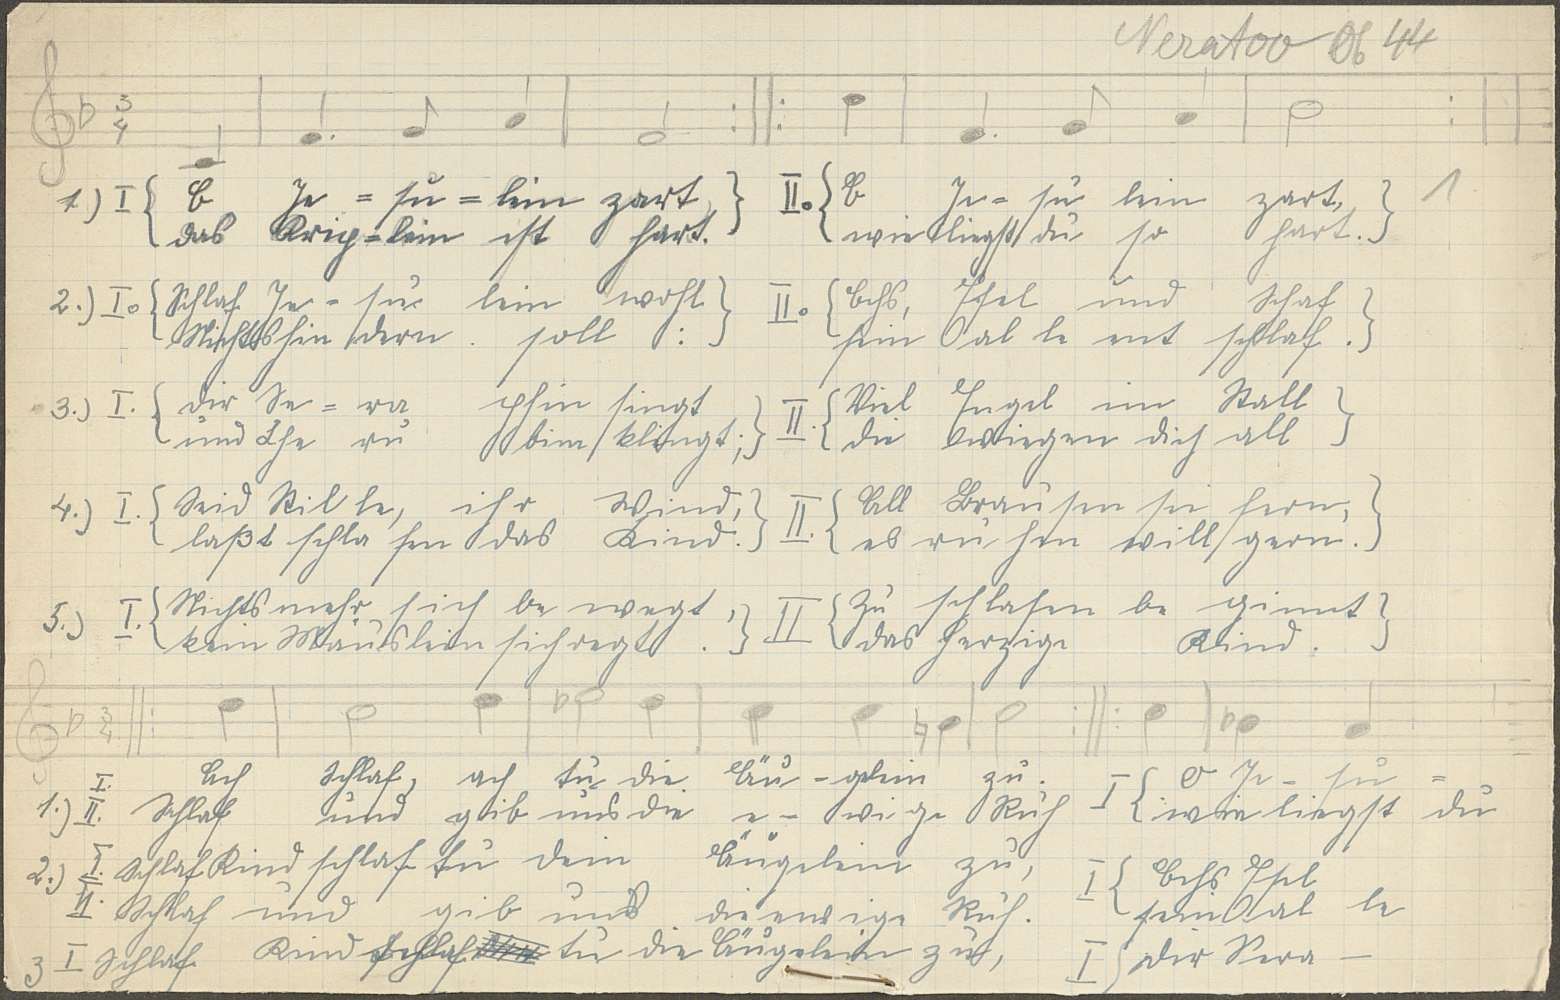 Neratov Ob 44
1
1.) I { O Je = su = lein zart, } II. { O Je = su lein zart, }
das Krip = lein ist hart. wie liegst du so hart.
2.) I. { Schlaf Je = su lein wohl } II. { Ochs, Esel und Schaf }
Nichts hin dern soll : sein al le ent schlaf.
3.) I. { dir Se = ra phin singt } II. { Viel Engel im Stall }
und Che ru bim klingt; die wiegen dich all
4.) I. { Seid Stil le, ihr Wind, } II. { All Brausen sei fern, }
laßt schla fen das Kind. es ru hen will gern.
5.) I. { Nichts mehr sich be wegt, } II { Zu schlafen be ginnt }
kein Mäuslein sich regt. das herzige Kind.
1.) I. Ach Schlaf, ach tu die Äu - gelein zu. I { O Je - su =
II. Schlaf und gib uns die e - wi ge Ruh wie liegst du
2.) I. Schlaf Kind schlaf tu dein Äugelein zu, I { Ochs Esel
II. Schlaf und gib uns die ewige Ruh. sein al le
3 I Schlaf Kind schlaf tu die Äugelein zu, I { dir Sera -